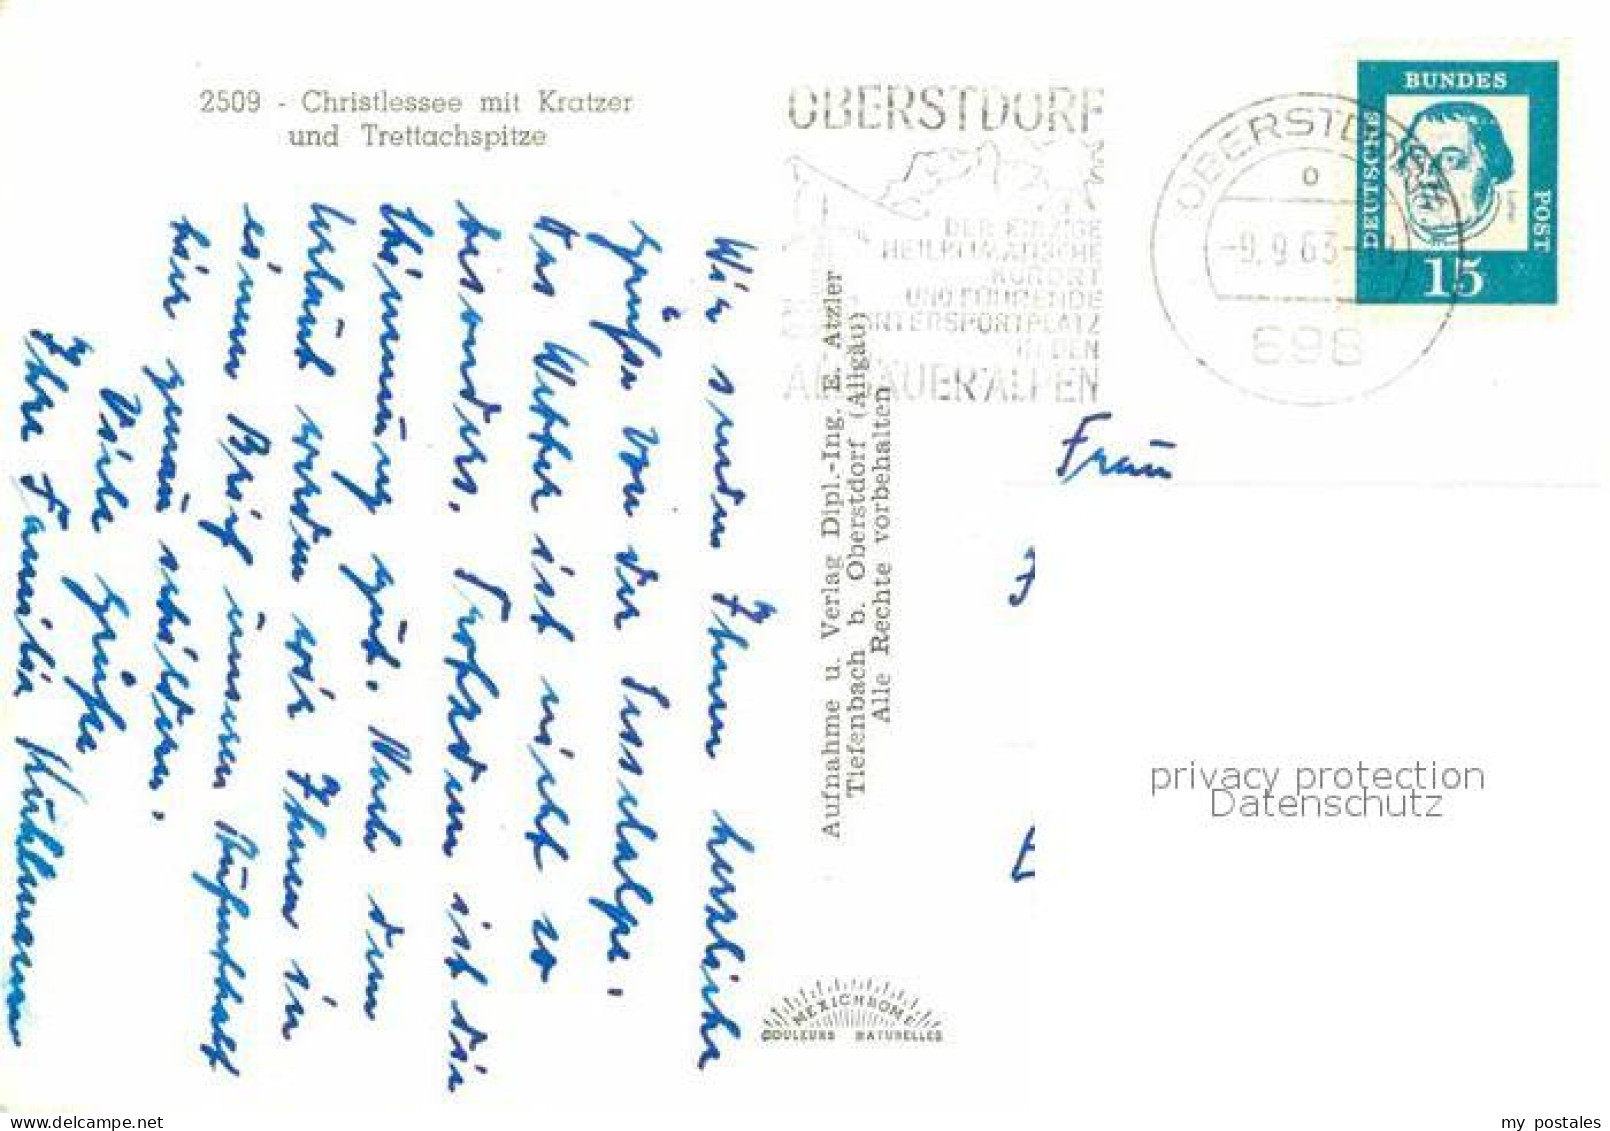 2509 - Christlessee mit Kratzer
und Trettachspitze
Wir senden Ihnen herzliche
Grüße von der Fessenalpe.
Das Wetter ist nicht so
besonders. Trotzdem ist die
Stimmung gut. Nach dem
Urlaub werden wir Ihnen in
einem Brief unseren Aufenthalt
hier genau schildern.
Viele Grüße
Ihre Familie Kuhlmann
Aufnahme u. Verlag Dipl.-Ing. E. Atzler
Tiefenbach b. Oberstdorf (Allgäu)
Alle Rechte vorbehalten
MEXICHROME
COULEURS NATURELLES
OBERSTDORF
DER EINZIGE
HEILKLIMATISCHE
KURORT
UND FÜHRENDE
WINTERSPORTPLATZ
IN DEN
ALLGÄUER ALPEN
OBERSTDORF
o
-9.9.63-
898
DEUTSCHE
BUNDES
POST
15
Frau
privacy protection
Datenschutz
my postales